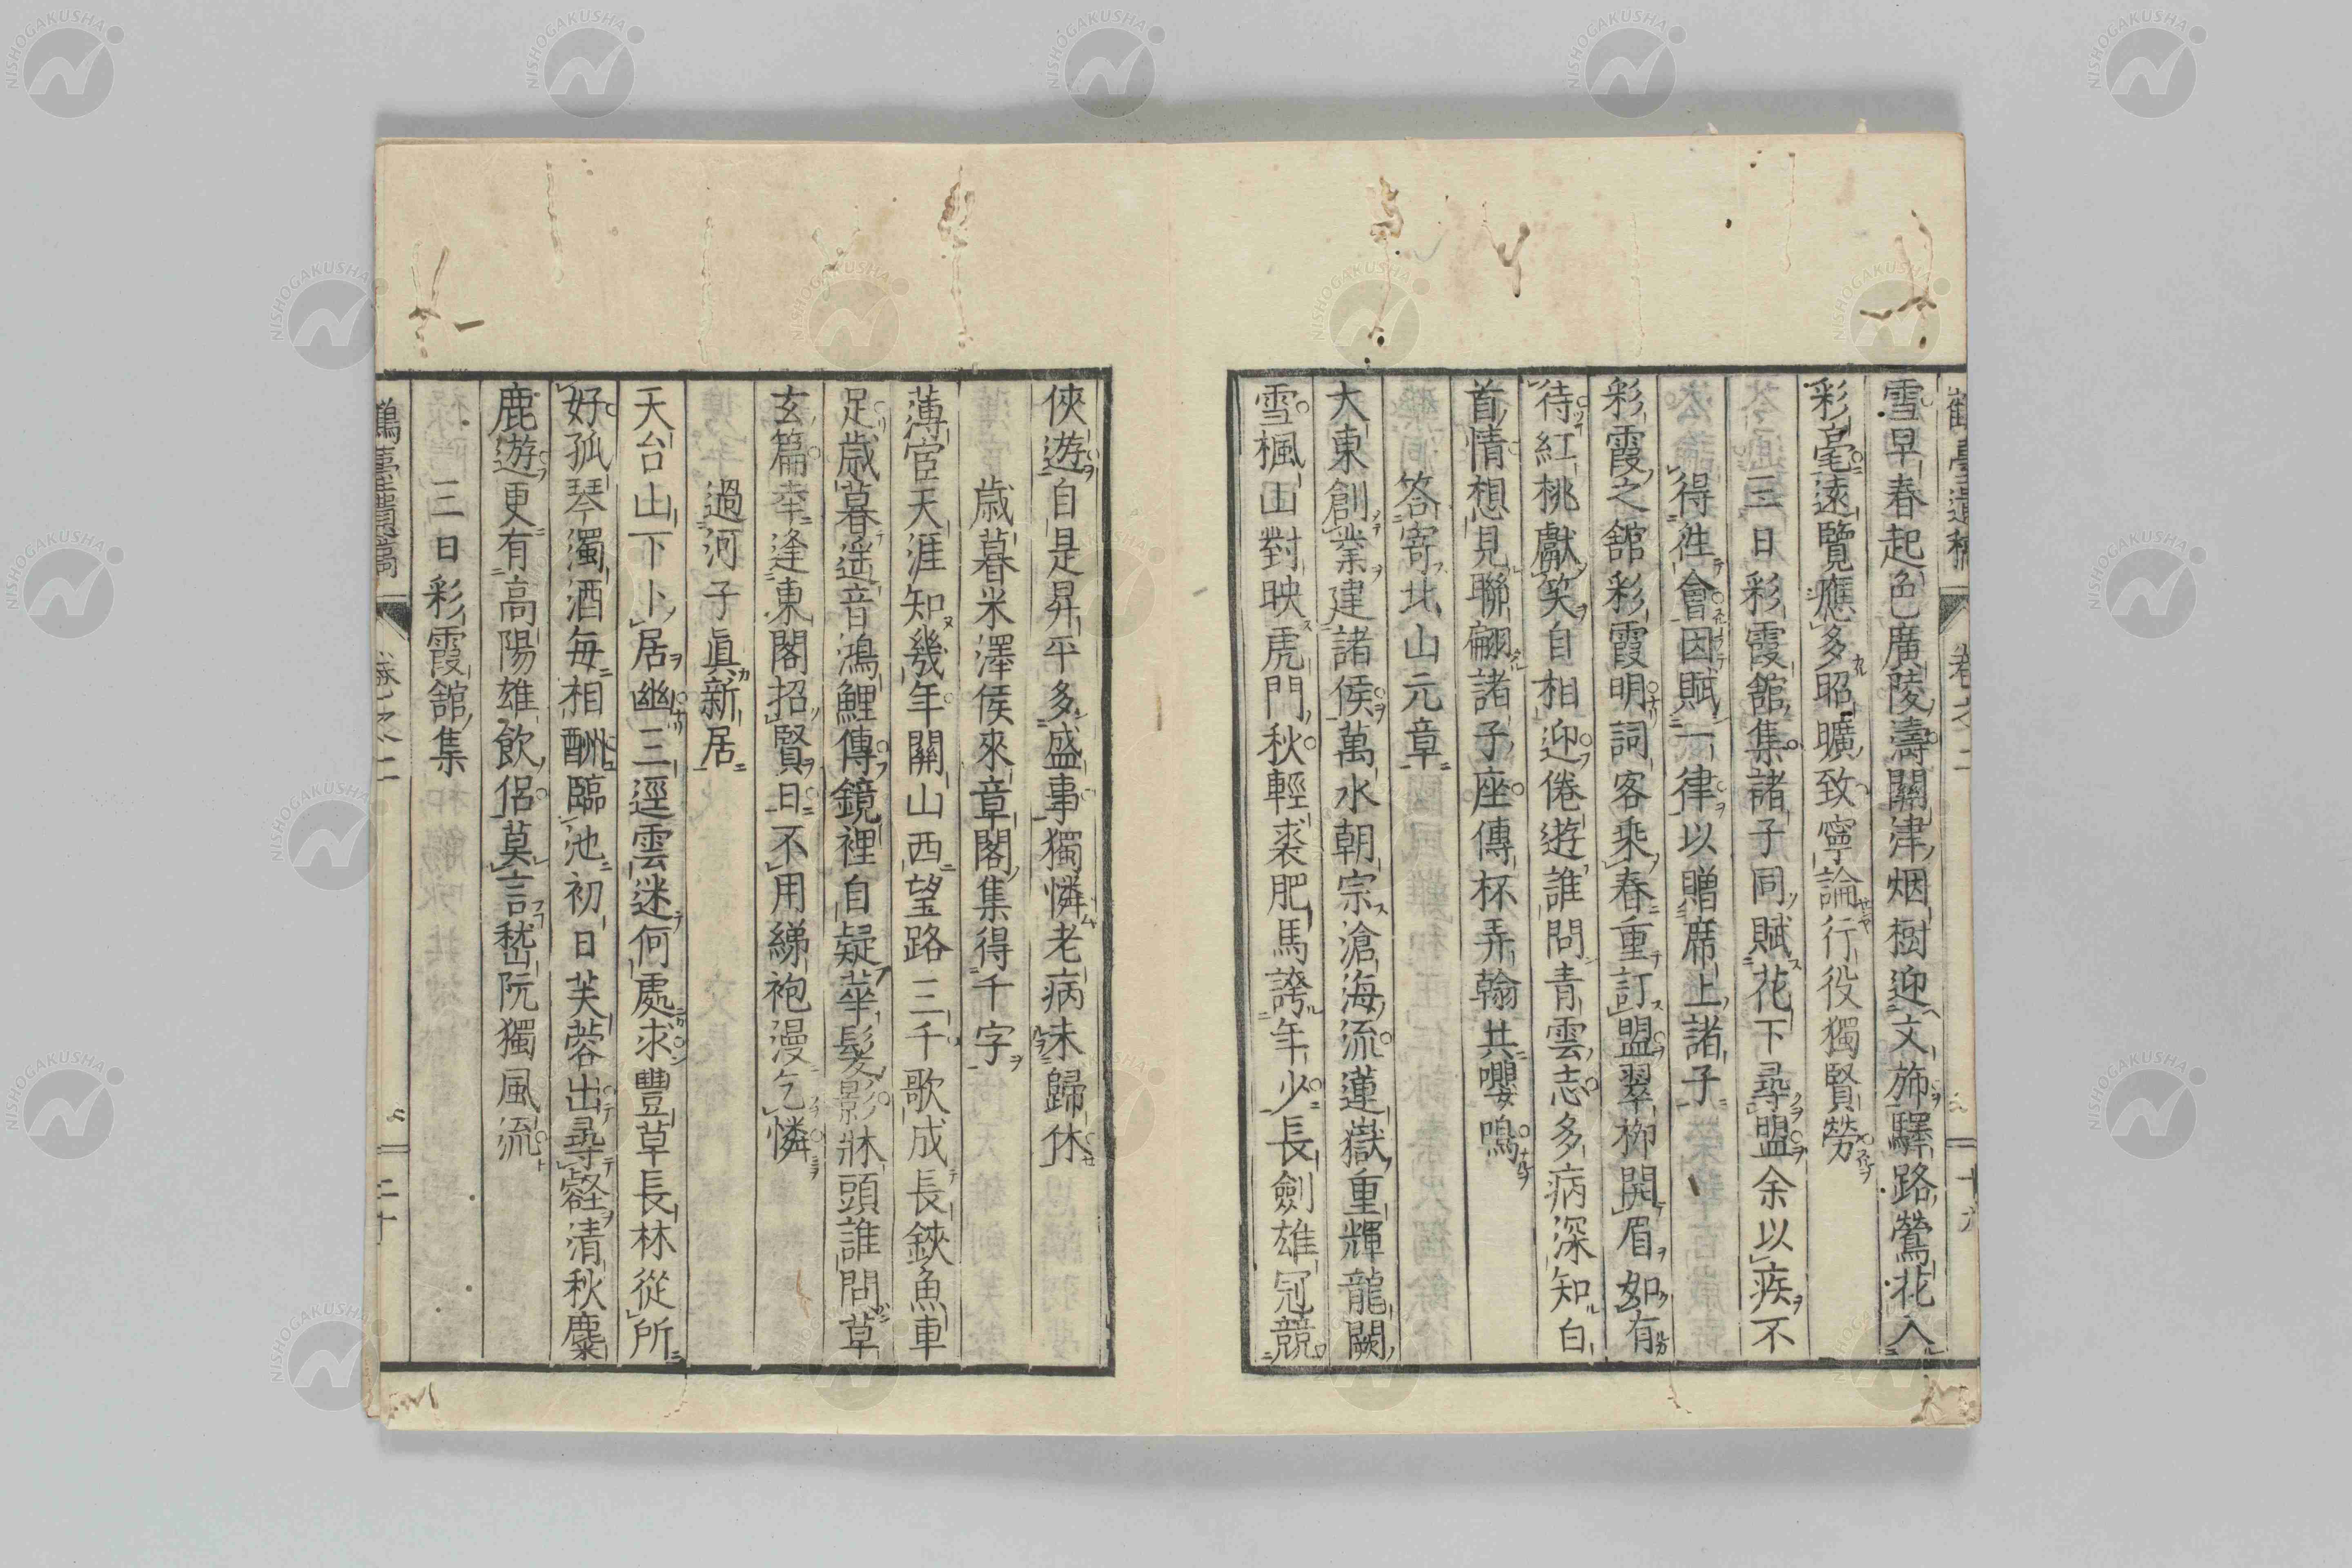 雪早春起色廣陵濤關津烟樹迎文旆驛路鶯花入
彩毫遠覽應多昭曠致寧論行役獨賢勞
三日彩霞舘集諸子同賦花下尋盟余以疾不
得徃會因賦一律以贈席上諸子
彩霞之舘彩霞明詞客乘春重訂盟翠栁開眉如有
待紅桃獻笑自相迎倦遊誰問青雲志多病深知白
首情想見聯翩諸子座傳杯弄翰共嚶鳴
答寄北山元章
大東創業建諸侯萬水朝宗滄海流蓮嶽重輝龍闕
雪楓山對映虎門秋輕裘肥馬誇年少長劍雄冠競
俠遊自是昇平多盛事獨憐老病未歸休
歳暮米澤侯來章閣集得千字
薄宦天涯知幾年關山西望路三千歌成長鋏魚車
足歳暮遥音鴻鯉傳鏡裡自疑華髮影牀頭誰問草
玄篇幸逢東閣招賢日不用綈袍漫乞憐
過河子眞新居
天台山下卜居幽三逕雲迷何處求豐草長林從所
好孤琴濁酒毎相酬臨池初日芙蓉出尋壑清秋麋
鹿遊更有高陽雄飲侶莫言嵇阮獨風流
三日彩霞舘集
鶴臺遺稿
卷之二
二十
NISHOGAKUSHA